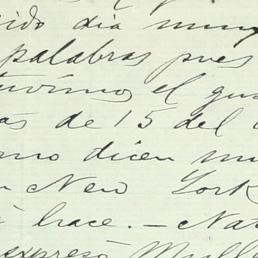 ido dia muy
palabras pues
tuvimos el gus
as de 15 del
mo dicen mu
n New York
i hace. — Nat
expresó Mull